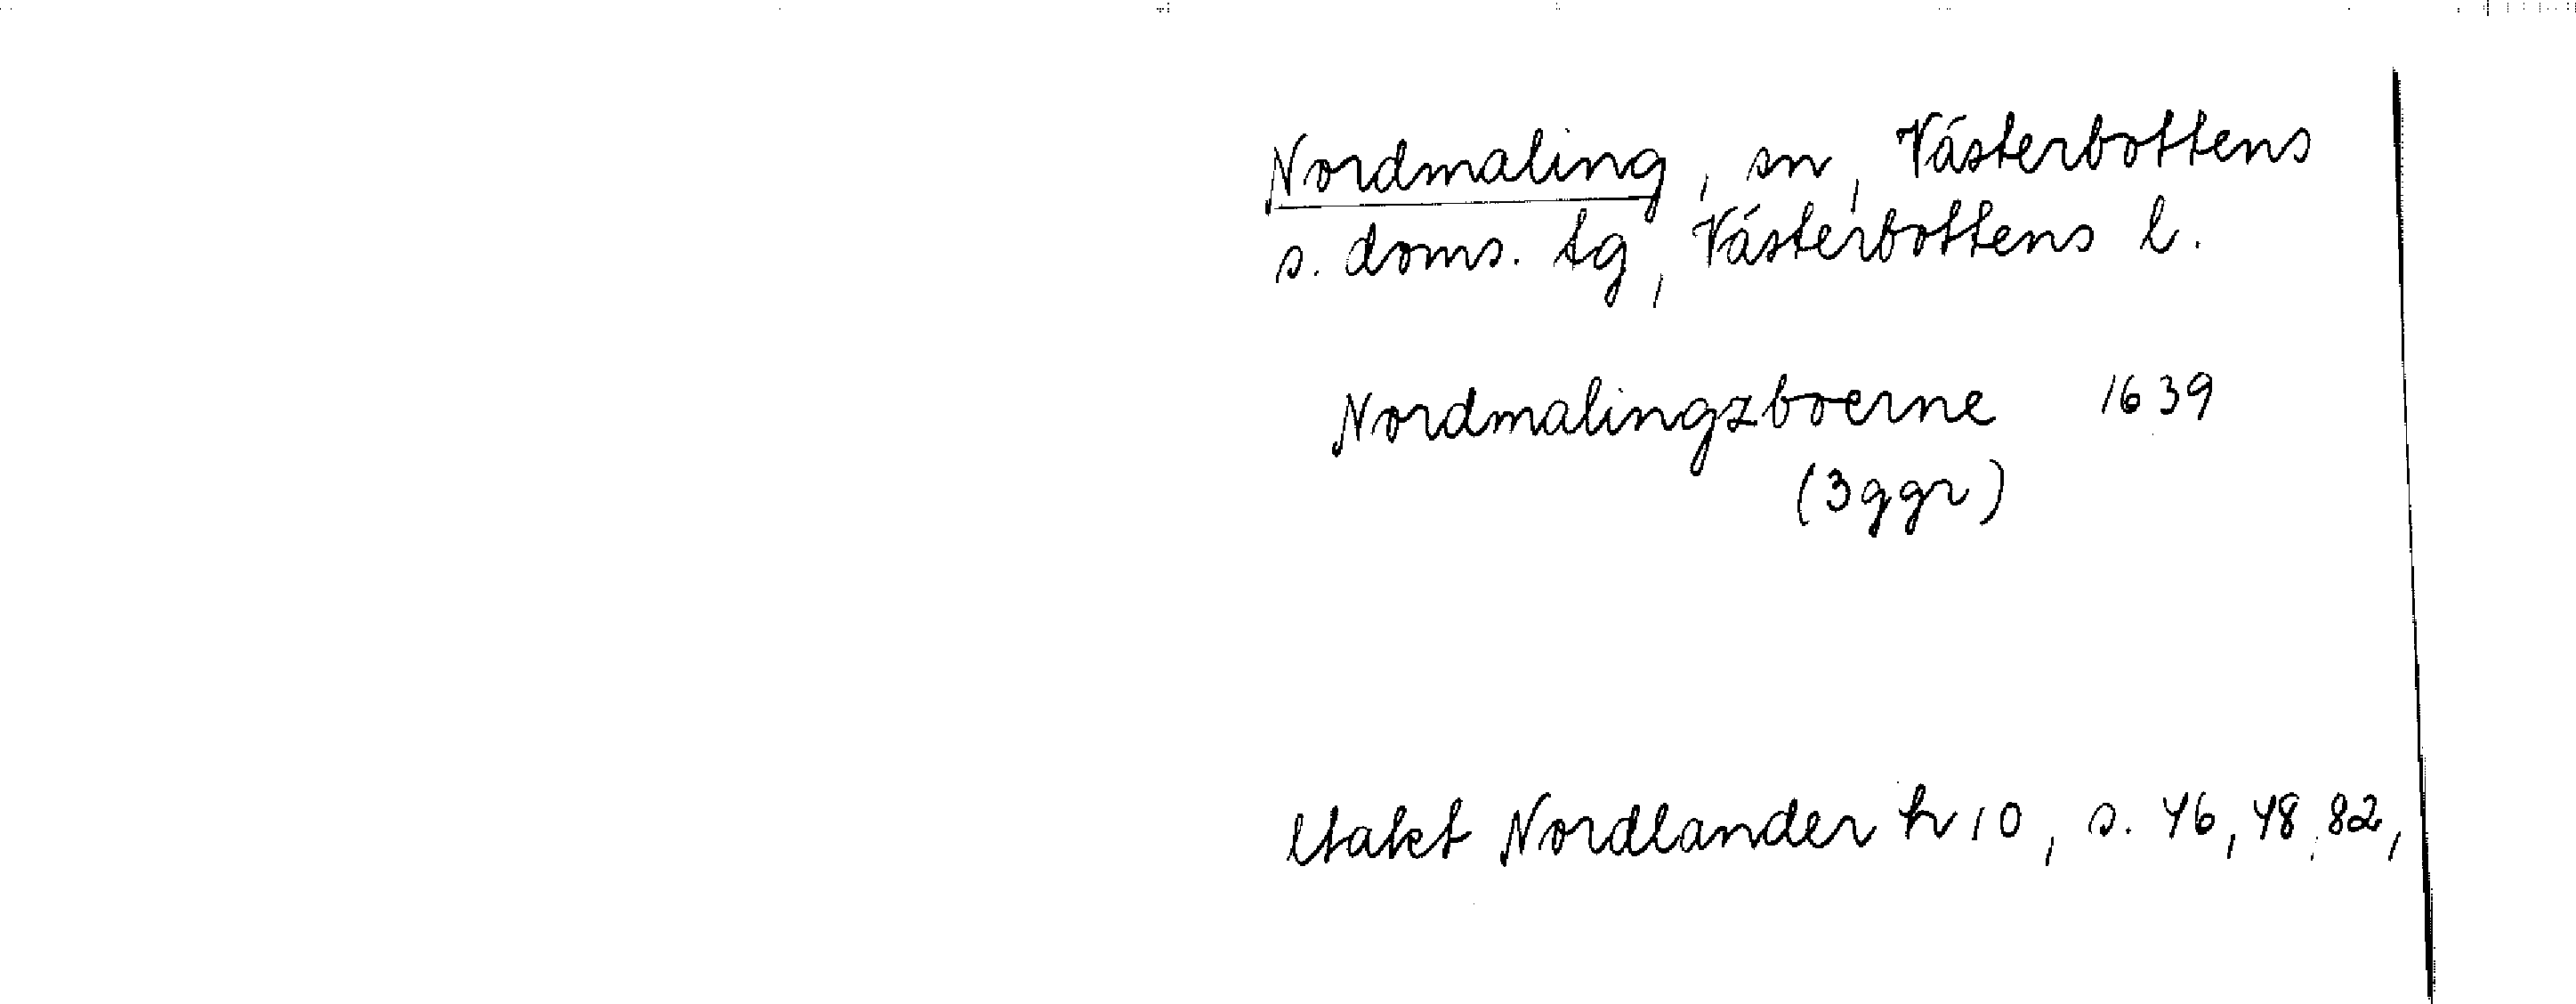 Nordmaling, sn, Västerbottens
s. doms. tg, Västerbottens l.
Nordmalingzboerne 1639
(3ggr)
Utakt Nordlander h 10, s. 46, 48, 82,